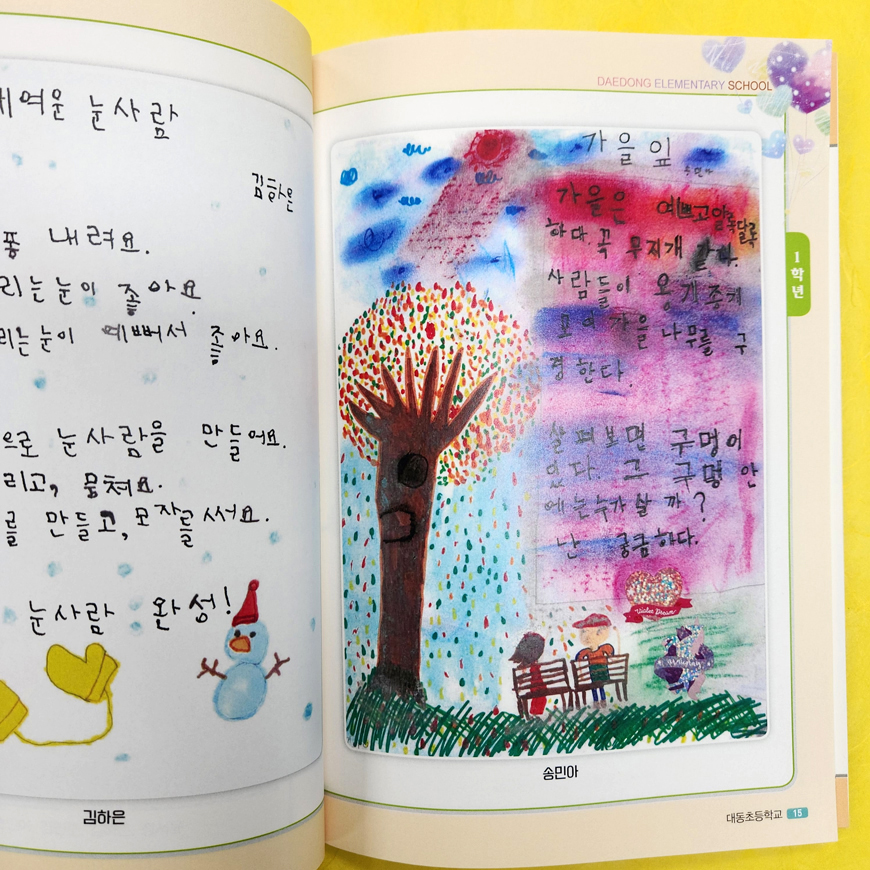 여운 눈사람
김하은
내려요.
리는 눈이 좋아요
리는 눈이 예뻐서 좋아요.
으로 눈사람을 만들어요.
리고, 뭉쳐요.
를 만들고, 모자를 써요.
눈사람 완성!
김하은
DAEDONG ELEMENTARY SCHOOL
1학년
가을 잎
가을은 예쁘고 알록달록
하다. 꼭 무지개 같다.
사람들이 옹기종기
모여 가을 나무들 구
경한다.
살펴보면 구멍이
있다. 그 구멍 안
에는 누가 살까?
난 궁금하다.
송민아
대동초등학교 15